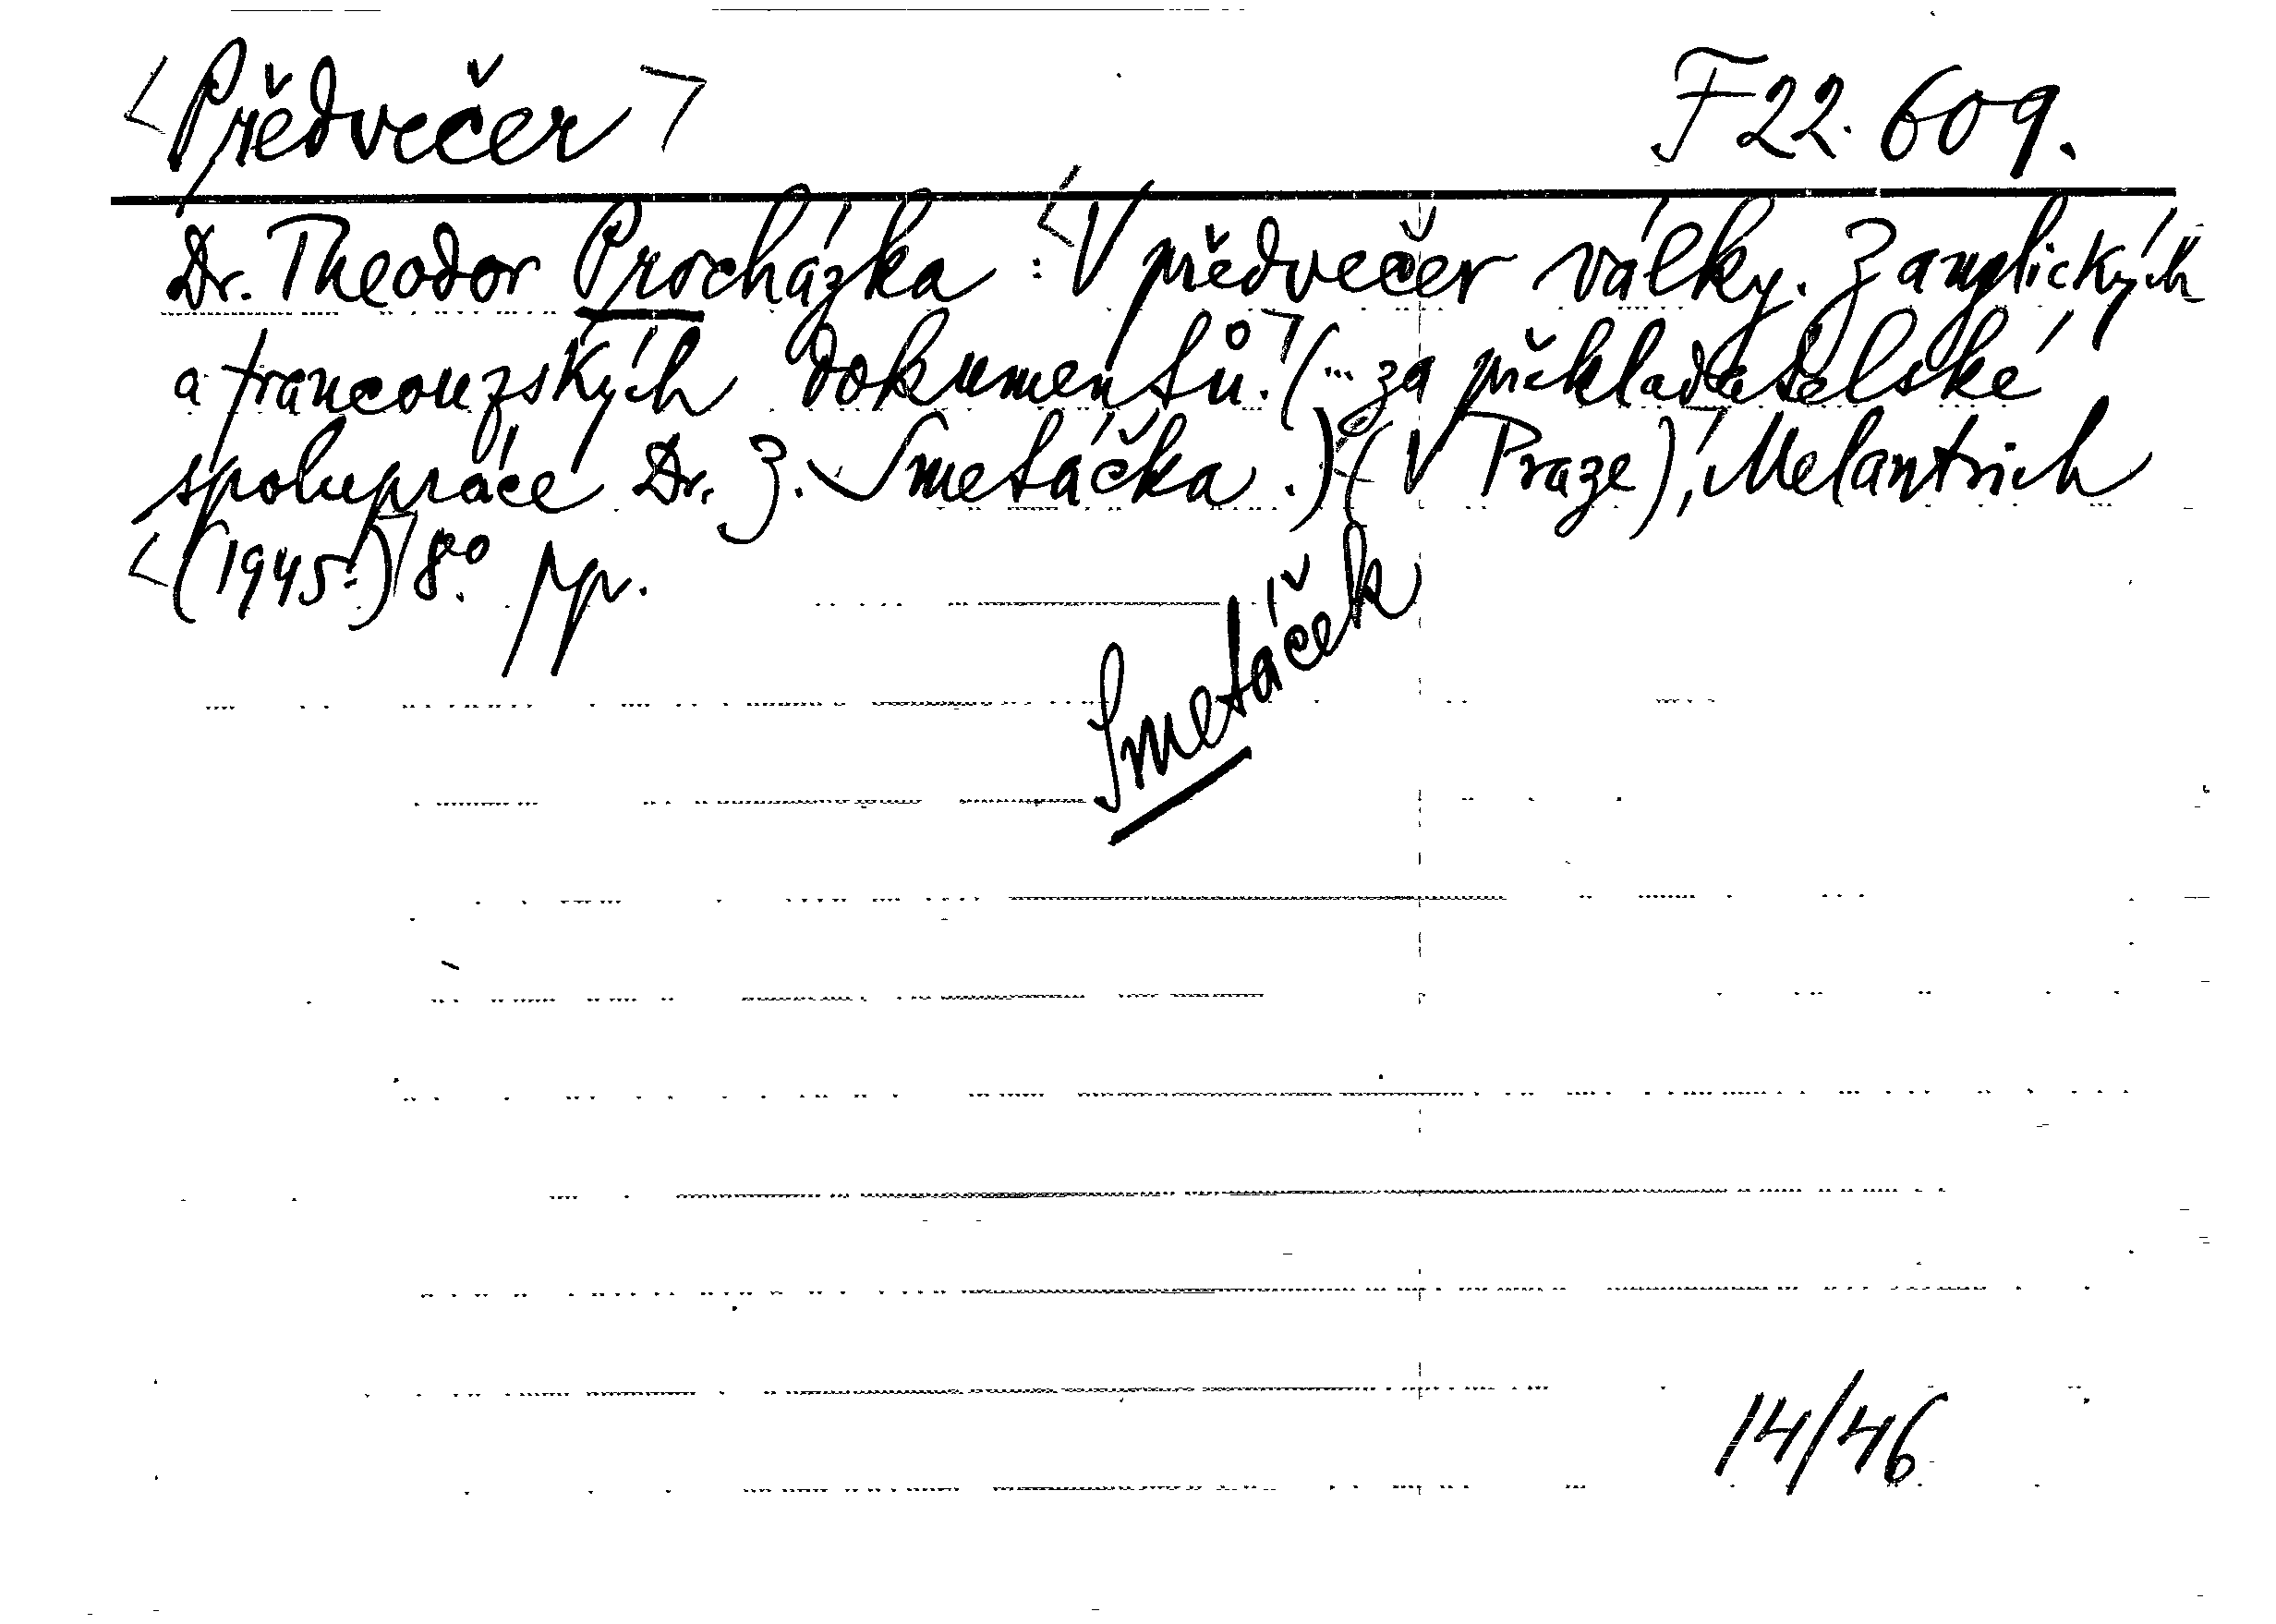 <Předvečer> F 22.609.
Dr. Theodor Procházka : <V předvečer války. Z anglických
a francouzských dokumentů.> (... za překladatelské
spolupráce Dr. Z. Smetáčka.) (V Praze), Melantrich
<(1945.)> 8°. pp.
Smetáček
14/46